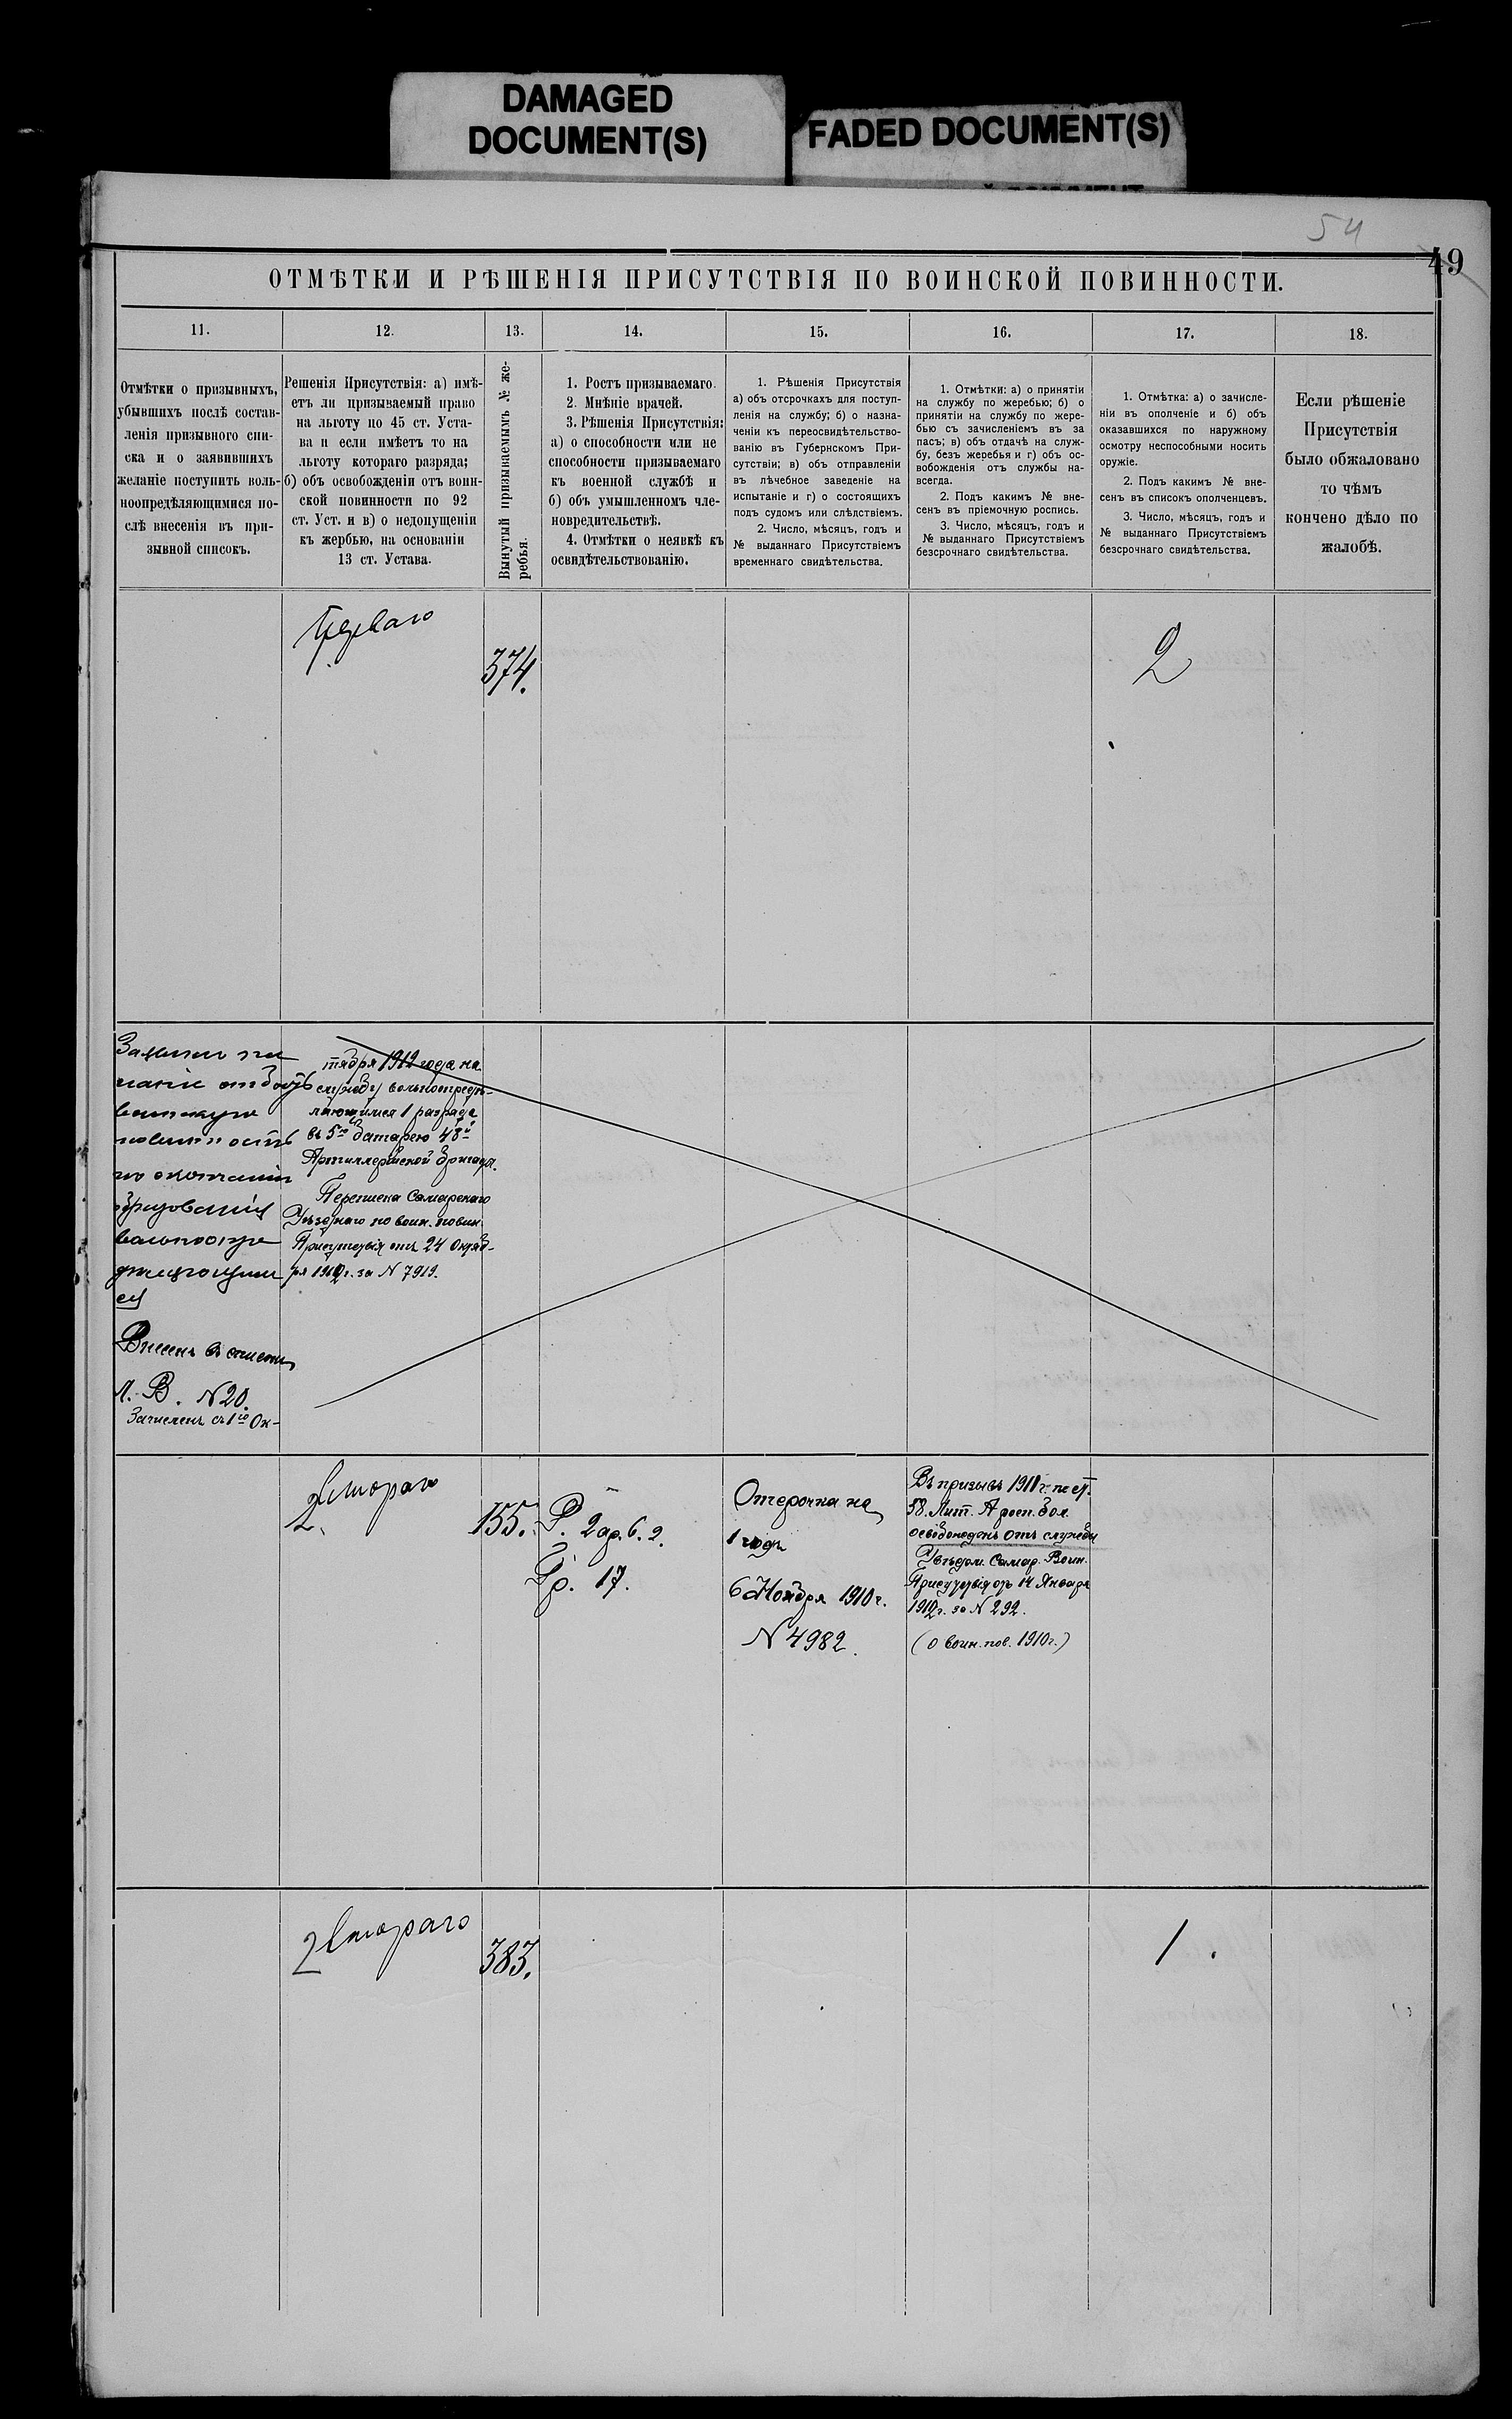 DAMAGED
DOCUMENT(S)
FADED DOCUMENT(S)
54
49
ОТМѢТКИ И РѢШЕНІЯ ПРИСУТСТВІЯ ПО ВОИНСКОЙ ПОВИННОСТИ.
11.
12.
13.
14.
15.
16.
17.
18.
Отмѣтки о призывныхъ,
убывшихъ послѣ состав-
ленія призывного спи-
ска и о заявившихъ
желаніе поступить воль-
ноопредѣляющимися по-
слѣ внесенія въ при-
зывной списокъ.
Решенія Присутствія: а) имѣ-
етъ ли призываемый право
на льготу по 45 ст. Уста-
ва и если имѣетъ то на
льготу котораго разряда;
б) объ освобожденіи отъ воин-
ской повинности по 92
ст. Уст. и в) о недопущеніи
къ жербью, на основаніи
13 ст. Устава.
Вынутый призываемымъ № же-
ребья.
1. Ростъ призываемаго.
2. Мнѣніе врачей.
3. Рѣшенія Присутствія:
а) о способности или не
способности призываемаго
къ военной службѣ и
б) объ умышленномъ чле-
новредительствѣ.
4. Отмѣтки о неявкѣ къ
освидѣтельствованію.
1. Рѣшенія Присутствія
а) объ отсрочкахъ для поступ-
ленія на службу; б) о назна-
ченіи къ переосвидѣтельство-
ванію въ Губернскомъ При-
сутствіи; в) объ отправленіи
въ лѣчебное заведеніе на
испытаніе и г) о состоящихъ
подъ судомъ или слѣдствіемъ.
2. Число, мѣсяцъ, годъ и
№ выданнаго Присутствіемъ
временнаго свидѣтельства.
1. Отмѣтки: а) о принятіи
на службу по жеребью; б) о
принятіи на службу по жере-
бью съ зачисленіемъ въ за
пасъ; в) объ отдачѣ на служ-
бу, безъ жеребья и г) объ ос-
вобожденія отъ службы на-
всегда.
2. Подъ какимъ № вне-
сенъ въ пріемочную роспись.
3. Число, мѣсяцъ, годъ и
№ выданнаго Присутствіемъ
безсрочнаго свидѣтельства.
1. Отмѣтка: а) о зачисле-
ніи въ ополченіе и б) объ
оказавшихся по наружному
осмотру неспособными носить
оружіе.
2. Подъ какимъ № вне-
сенъ въ списокъ ополченцевъ.
3. Число, мѣсяцъ, годъ и
№ выданнаго Присутствіемъ
безсрочнаго свидѣтельства.
Если рѣшеніе
Присутствія
было обжаловано
то чѣмъ
кончено дѣло по
жалобѣ.
374.
2
воинскую
повинность
по окончаніи
образованія
Внесенъ въ списокъ
Л. В. № 20.
Зачисленъ съ 1го Ок-
тября 1912 года на
службу вольноопредѣ-
ляющимся 1 разряда
въ 5ю батарею 48й
Артиллерійской бригады.
Переписка Самарскаго
Уѣзднаго по воин. повин.
Присутствія отъ 24 Октяб-
ря 1912 г. за N 7919.
2 втораго
155.
Р. 2 ар. 6. 2.
Гр. 17.
Отсрочка на
1 годъ
6 Ноября 1910 г.
N 4982.
Въ призывъ 1911 г. по ст.
58. Лит. А росп. бол.
освобожденъ отъ службы
Увѣдом. Самар. Воин.
Присутствія отъ 14 Января
1912 г. за N 292.
(о воин. пов. 1910 г.)
2 втораго
383.
1.